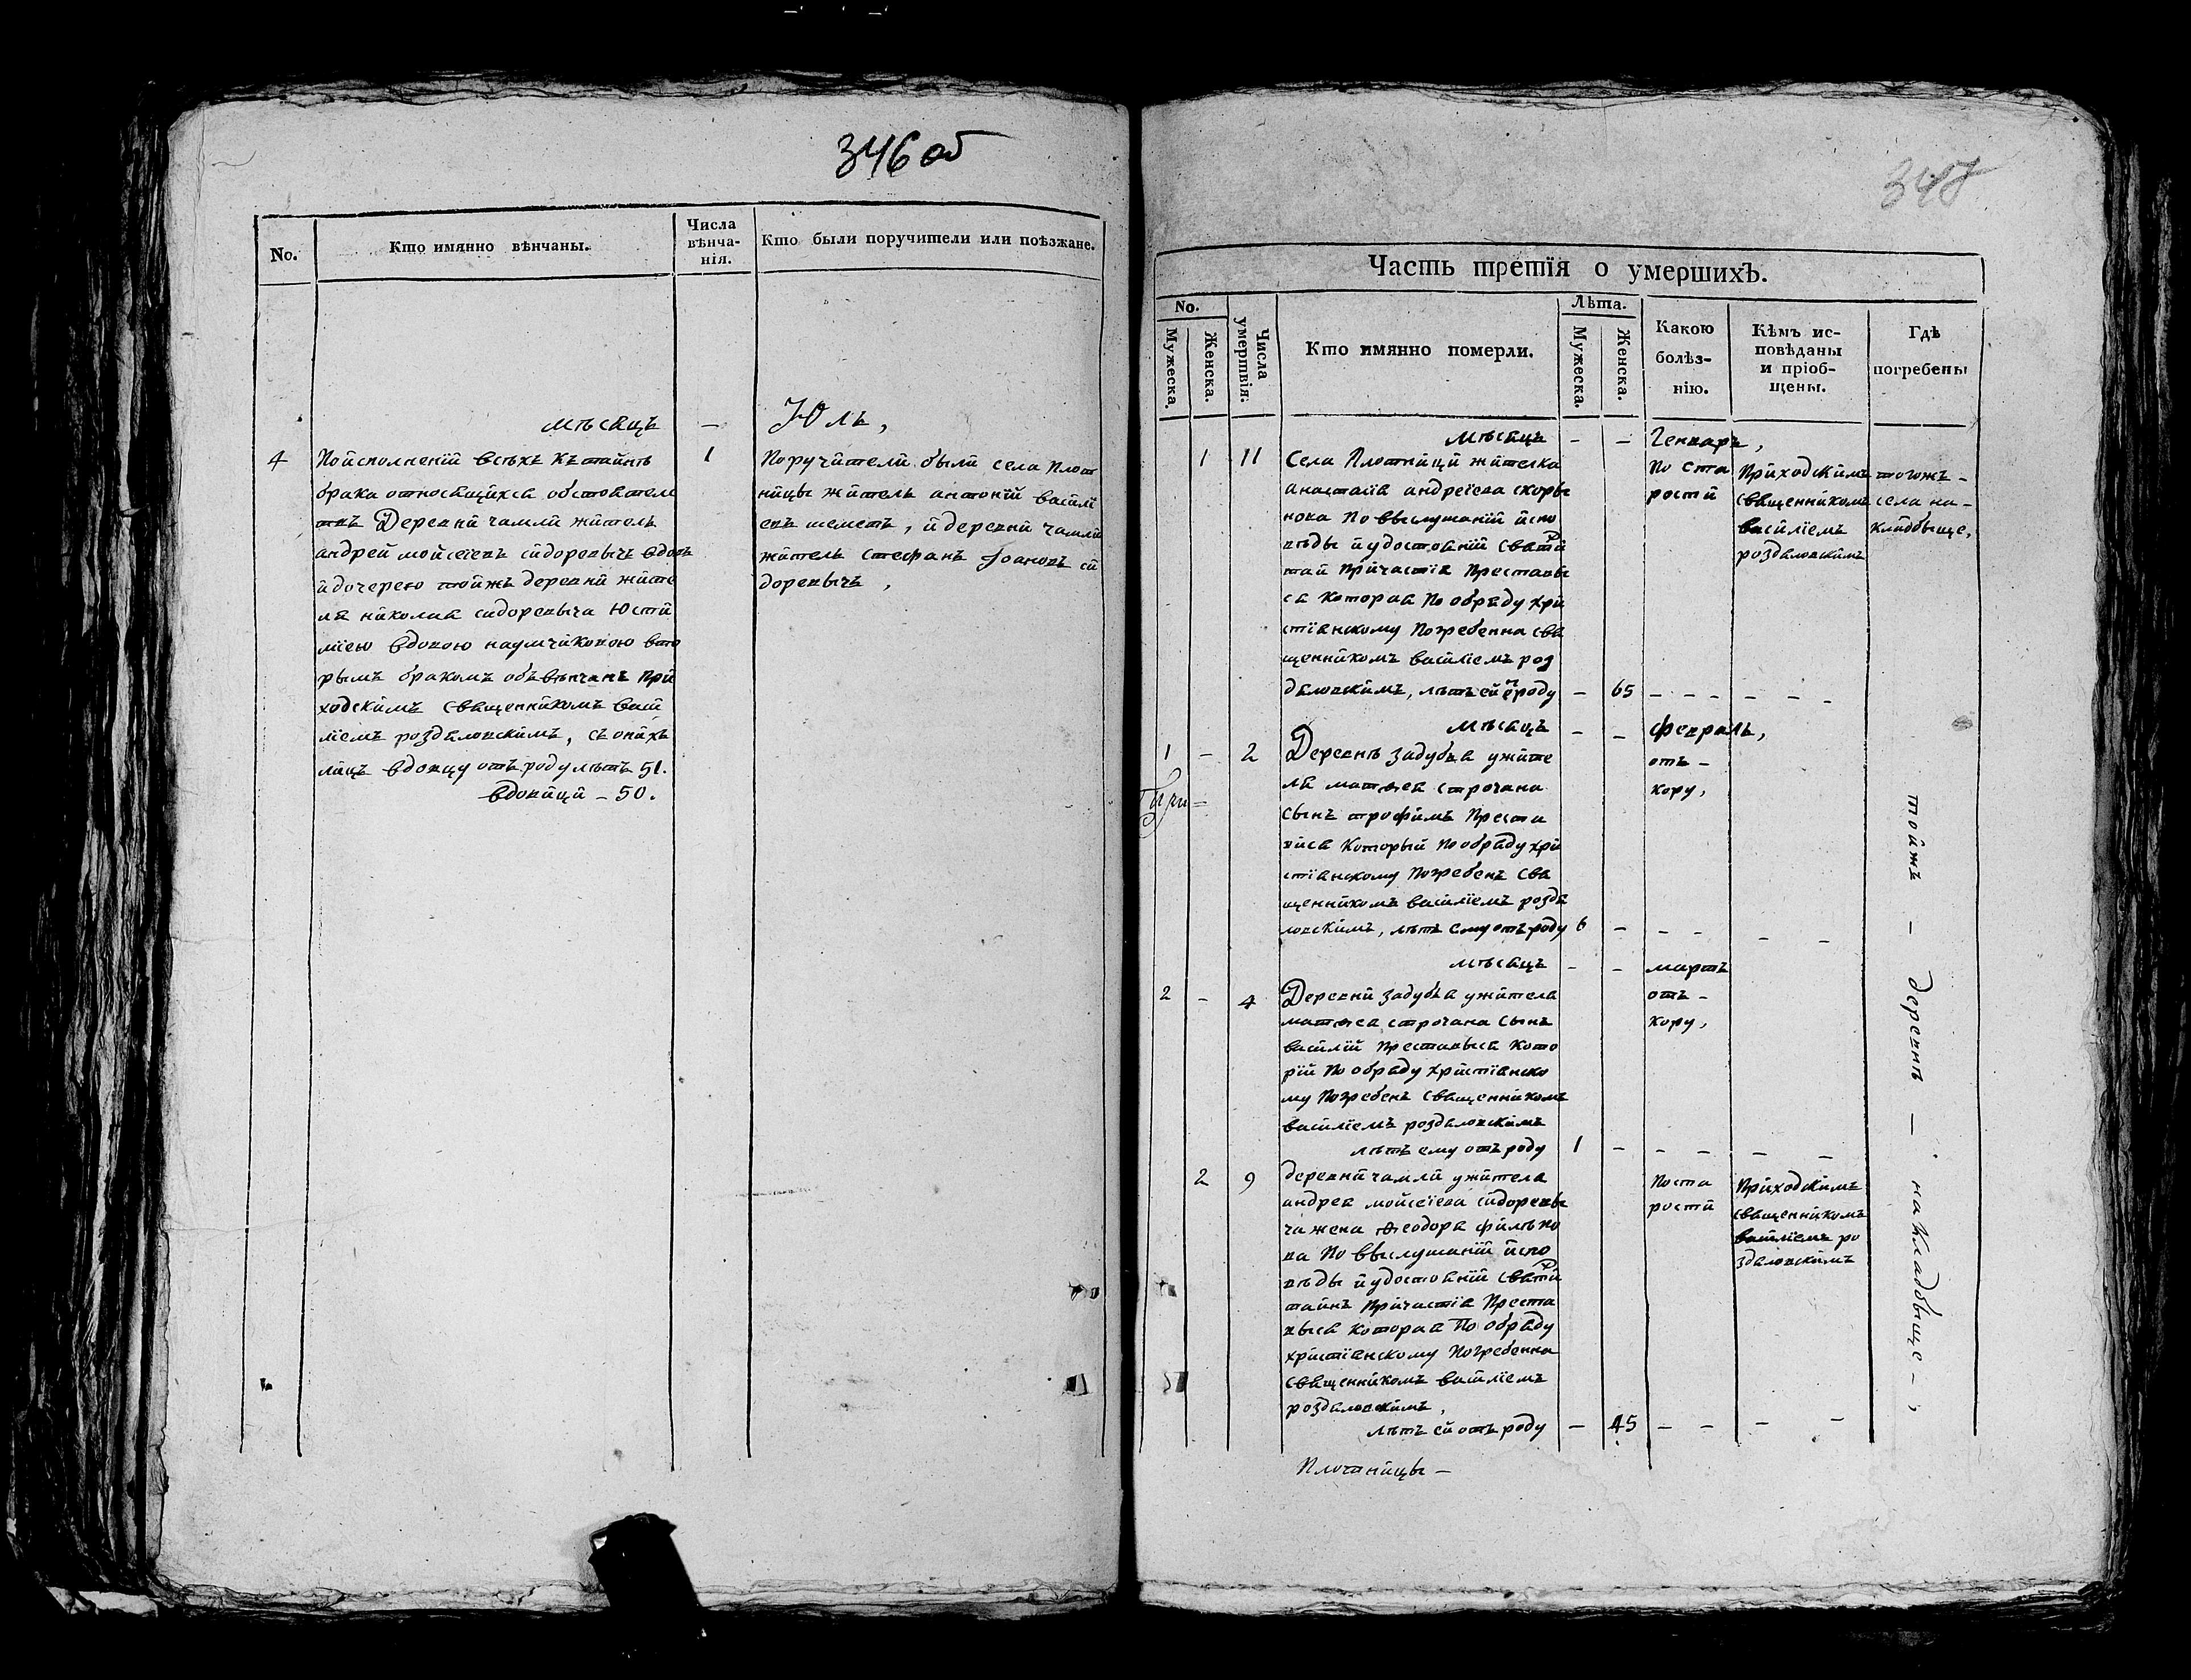 346 об
No.
Кто имянно вѣнчаны.
Числа
вѣнча-
нія.
Кто были поручители или поѣзжане.
мѣсяцъ — Юль,
4
По исполненій всѣхъ къ тайнѣ
брака относящихся обстоятель
твъ Деревни чамли житель
андрей мойсеіевъ сидоревычъ вдовъ
и дочерею тойжъ деревни жите
ля николая сидоревыча Юсти
міею вдовою наумчиковою вто
рымъ бракомъ обвѣнчанъ при
ходскимъ священникомъ васи
ліемъ роздяловскимъ, съ онихъ
лицъ вдовцу отъ роду лѣтъ 51.
вдовици — 50.
1
Поручители были села плот
ницы житель антоній васили
евъ шеметъ, и деревни чамли
житель стефанъ Іоановъ си
доревычъ,
347
Часть третія о умершихъ.
No.
Мужеска.
Женска.
Числа
умертвія.
Кто имянно померли.
Лѣта.
Мужеска.
Женска.
Какою
болѣз-
нію.
Кѣмъ ис-
повѣданы
и пріоб-
щены.
Гдѣ
погребены
мѣсяцъ — — Генваръ,
1 11
Села Плотници жителка
анастасія андреіева скоры
нова по выслушаній испо
вѣды и удостояній святи
тай причастія преставы
ся которая по обряду хри
стіанскому погребенна свя
щенникомъ василіемъ роз
дяловскимъ, лѣтъ ей от роду — 65 — — — — — —
По ста
рости
Приходскимъ
священникомъ
василіемъ
роздяловскимъ
тогожъ —
села на —
кладбыще,
мѣсяцъ — — февраль,
1 — 2
Деревнѣ задубья ужите
ля матѳея строчана
сынъ трофимъ преста
вися который по обряду хри
стіанскому погребенъ свя
щенникомъ василіемъ роздя
ловскимъ, лѣтъ ему отъ роду 6 — — — — —
отъ —
кору,
мѣсяцъ — — мартъ
2 — 4
Деревни задубья ужителя
матѳея строчана сынъ
василій преставыся кото
рій по обряду христіанско
му погребенъ священникомъ
василіемъ роздяловскимъ
лѣтъ ему отъ роду 1 — — — — —
отъ —
кору,
2 9
деревни чамли ужителя
андрея мойсеіева сидоревы
ча жена ѳеодора филѣпо
ва по выслушаній испо
вѣды и удостояній святи
тайнъ причастія преста
выся которая по обряду
христіанскому погребенна
священникомъ василіемъ
роздяловскимъ,
лѣтъ ей отъ роду — 45 — — — —
По ста
рости
Приходскимъ
священникомъ
василіемъ ро
здяловскимъ
тойжъ — деревнѣ — на кладбыще —,
Плотницы —